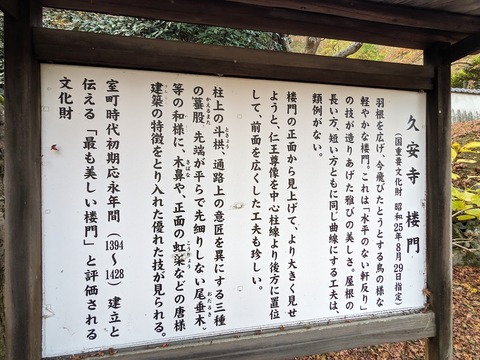 久安寺 楼門
（国重要文化財 昭和25年8月29日指定）
羽根を広げ、今飛びたとうとする鳥の様な
軽やかな楼門。これは「水平のない軒反り」
の技が造りあげた雅びの美しさ。屋根の
長い方、短い方ともに同じ曲線にする工夫は、
類例がない。
楼門の正面から見上げて、より大きく見せ
ようと、仁王尊像を中心柱線より後方に置位
して、前面を広くした工夫も珍しい。
柱上の斗栱、通路上の意匠を異にする三種
の蟇股、先端が平らで先細りしない尾垂木、
等の和様に、木鼻や、正面の虹梁などの唐様
建築の特徴をとり入れた優れた技が見られる。
室町時代初期応永年間（1394〜1428）建立と
伝える「最も美しい楼門」と評価される
文化財